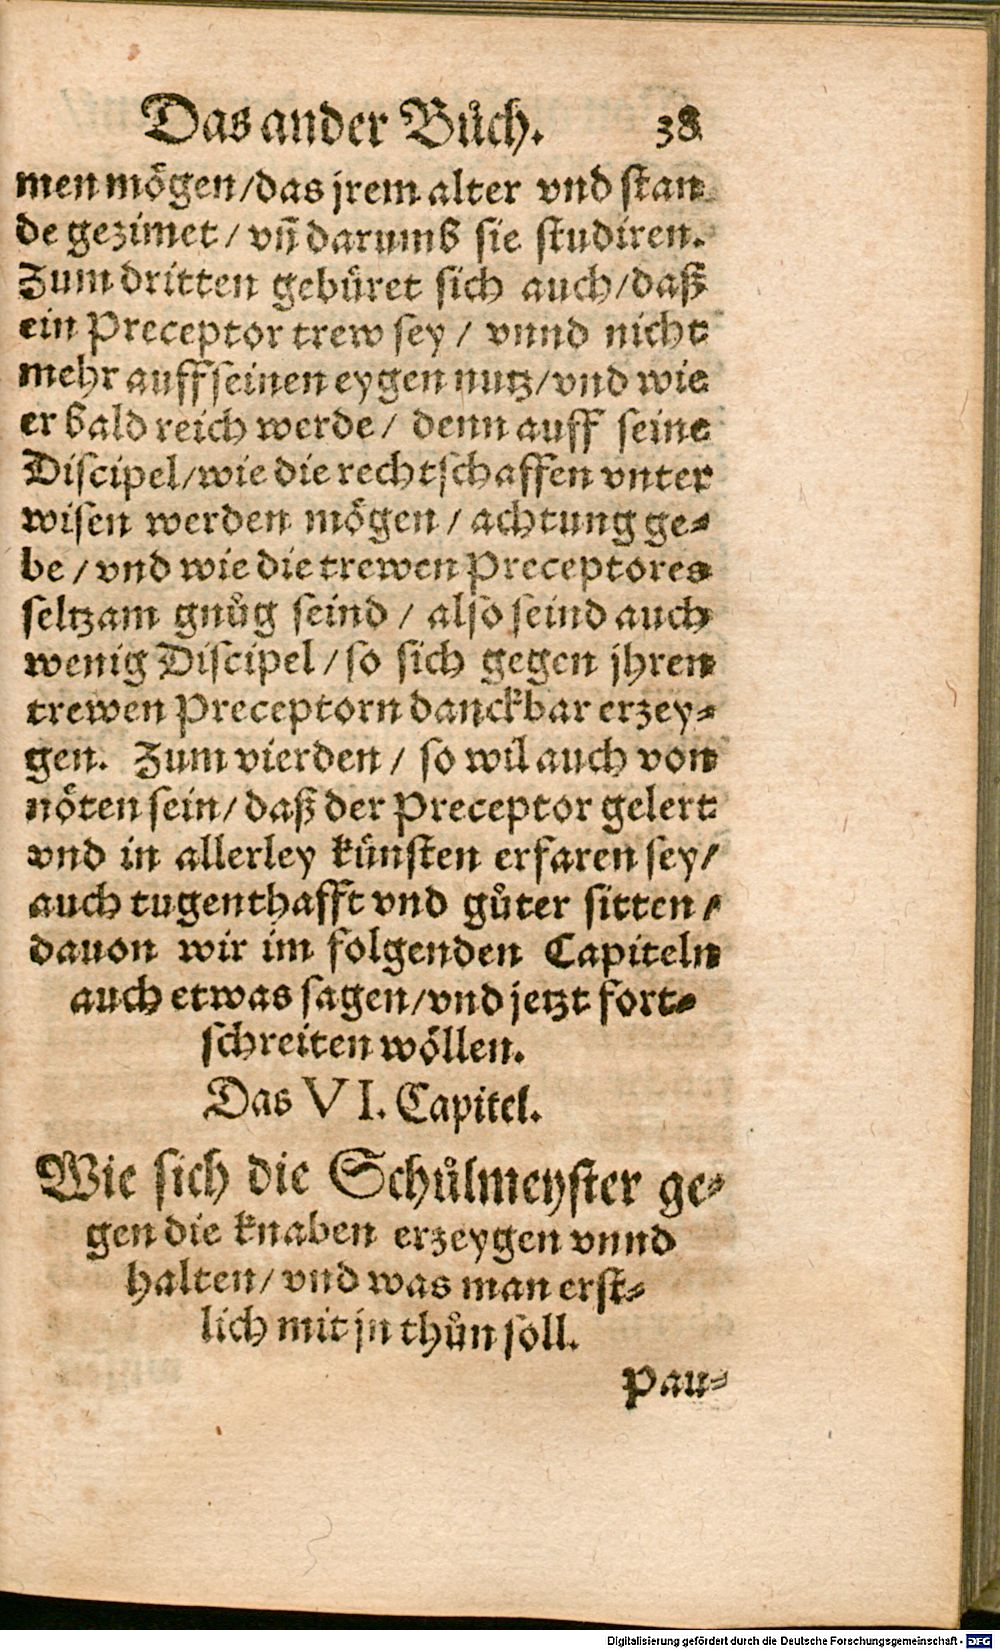 Das ander Bůch. 38
men mögen/das jrem alter vnd stan
de gezimet/ vñ darumb sie studiren.
Zum dritten gebüret sich auch/daß
ein Preceptor trew sey/ vnnd nicht
mehr auff seinen eygen nutz/vnd wie
er bald reich werde/ denn auff seine
Discipel/wie die rechtschaffen vnter
wisen werden mögen/ achtung ge⸗
be/vnd wie die trewen Preceptores
seltzam gnůg seind/ also seind auch
wenig Discipel/so sich gegen jhren
trewen Preceptorn danckbar erzey⸗
gen. Zum vierden/ so wil auch von
nöten sein/daß der Preceptor gelert
vnd in allerley künsten erfaren sey/
auch tugenthafft vnd gůter sitten/
dauon wir im folgenden Capiteln
auch etwas sagen/vnd jetzt fort⸗
schreiten wöllen.
Das VI. Capitel.
Wie sich die Schůlmeyster ge⸗
gen die knaben erzeygen vnnd
halten/vnd was man erst⸗
lich mit jn thůn soll.
Pau⸗
Digitalisierung gefördert durch die Deutsche Forschungsgemeinschaft - DFG